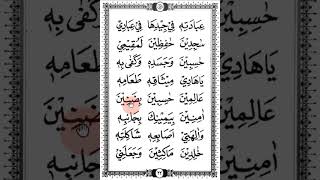 عِبَادَتِهٖ فِيْ جِيْدِهَا فِيْ عِبَادِيْ
سٰجِدِيْنَ حٰفِظِيْنَ لَمُقِيْمِيْ
حَسِيْبِيْنَ وَجَسَدِهٖ وَكَفٰى بِهٖ
يَاهَادِيْ مِيْثَاقِهٖ طَعَامِهٖ
عَالِمِيْنَ حٰسِبِيْنَ بِضَنِيْنَ
اٰمِنِيْنَ بِيَمِيْنِكَ بِجَانِبِهٖ
وَاٰلِهَتِيْ اَصَابِعِهٖ شَاكِلَتِهٖ
خٰلِدِيْنَ مَاكِثِيْنَ وَجَعَلَنِيْ